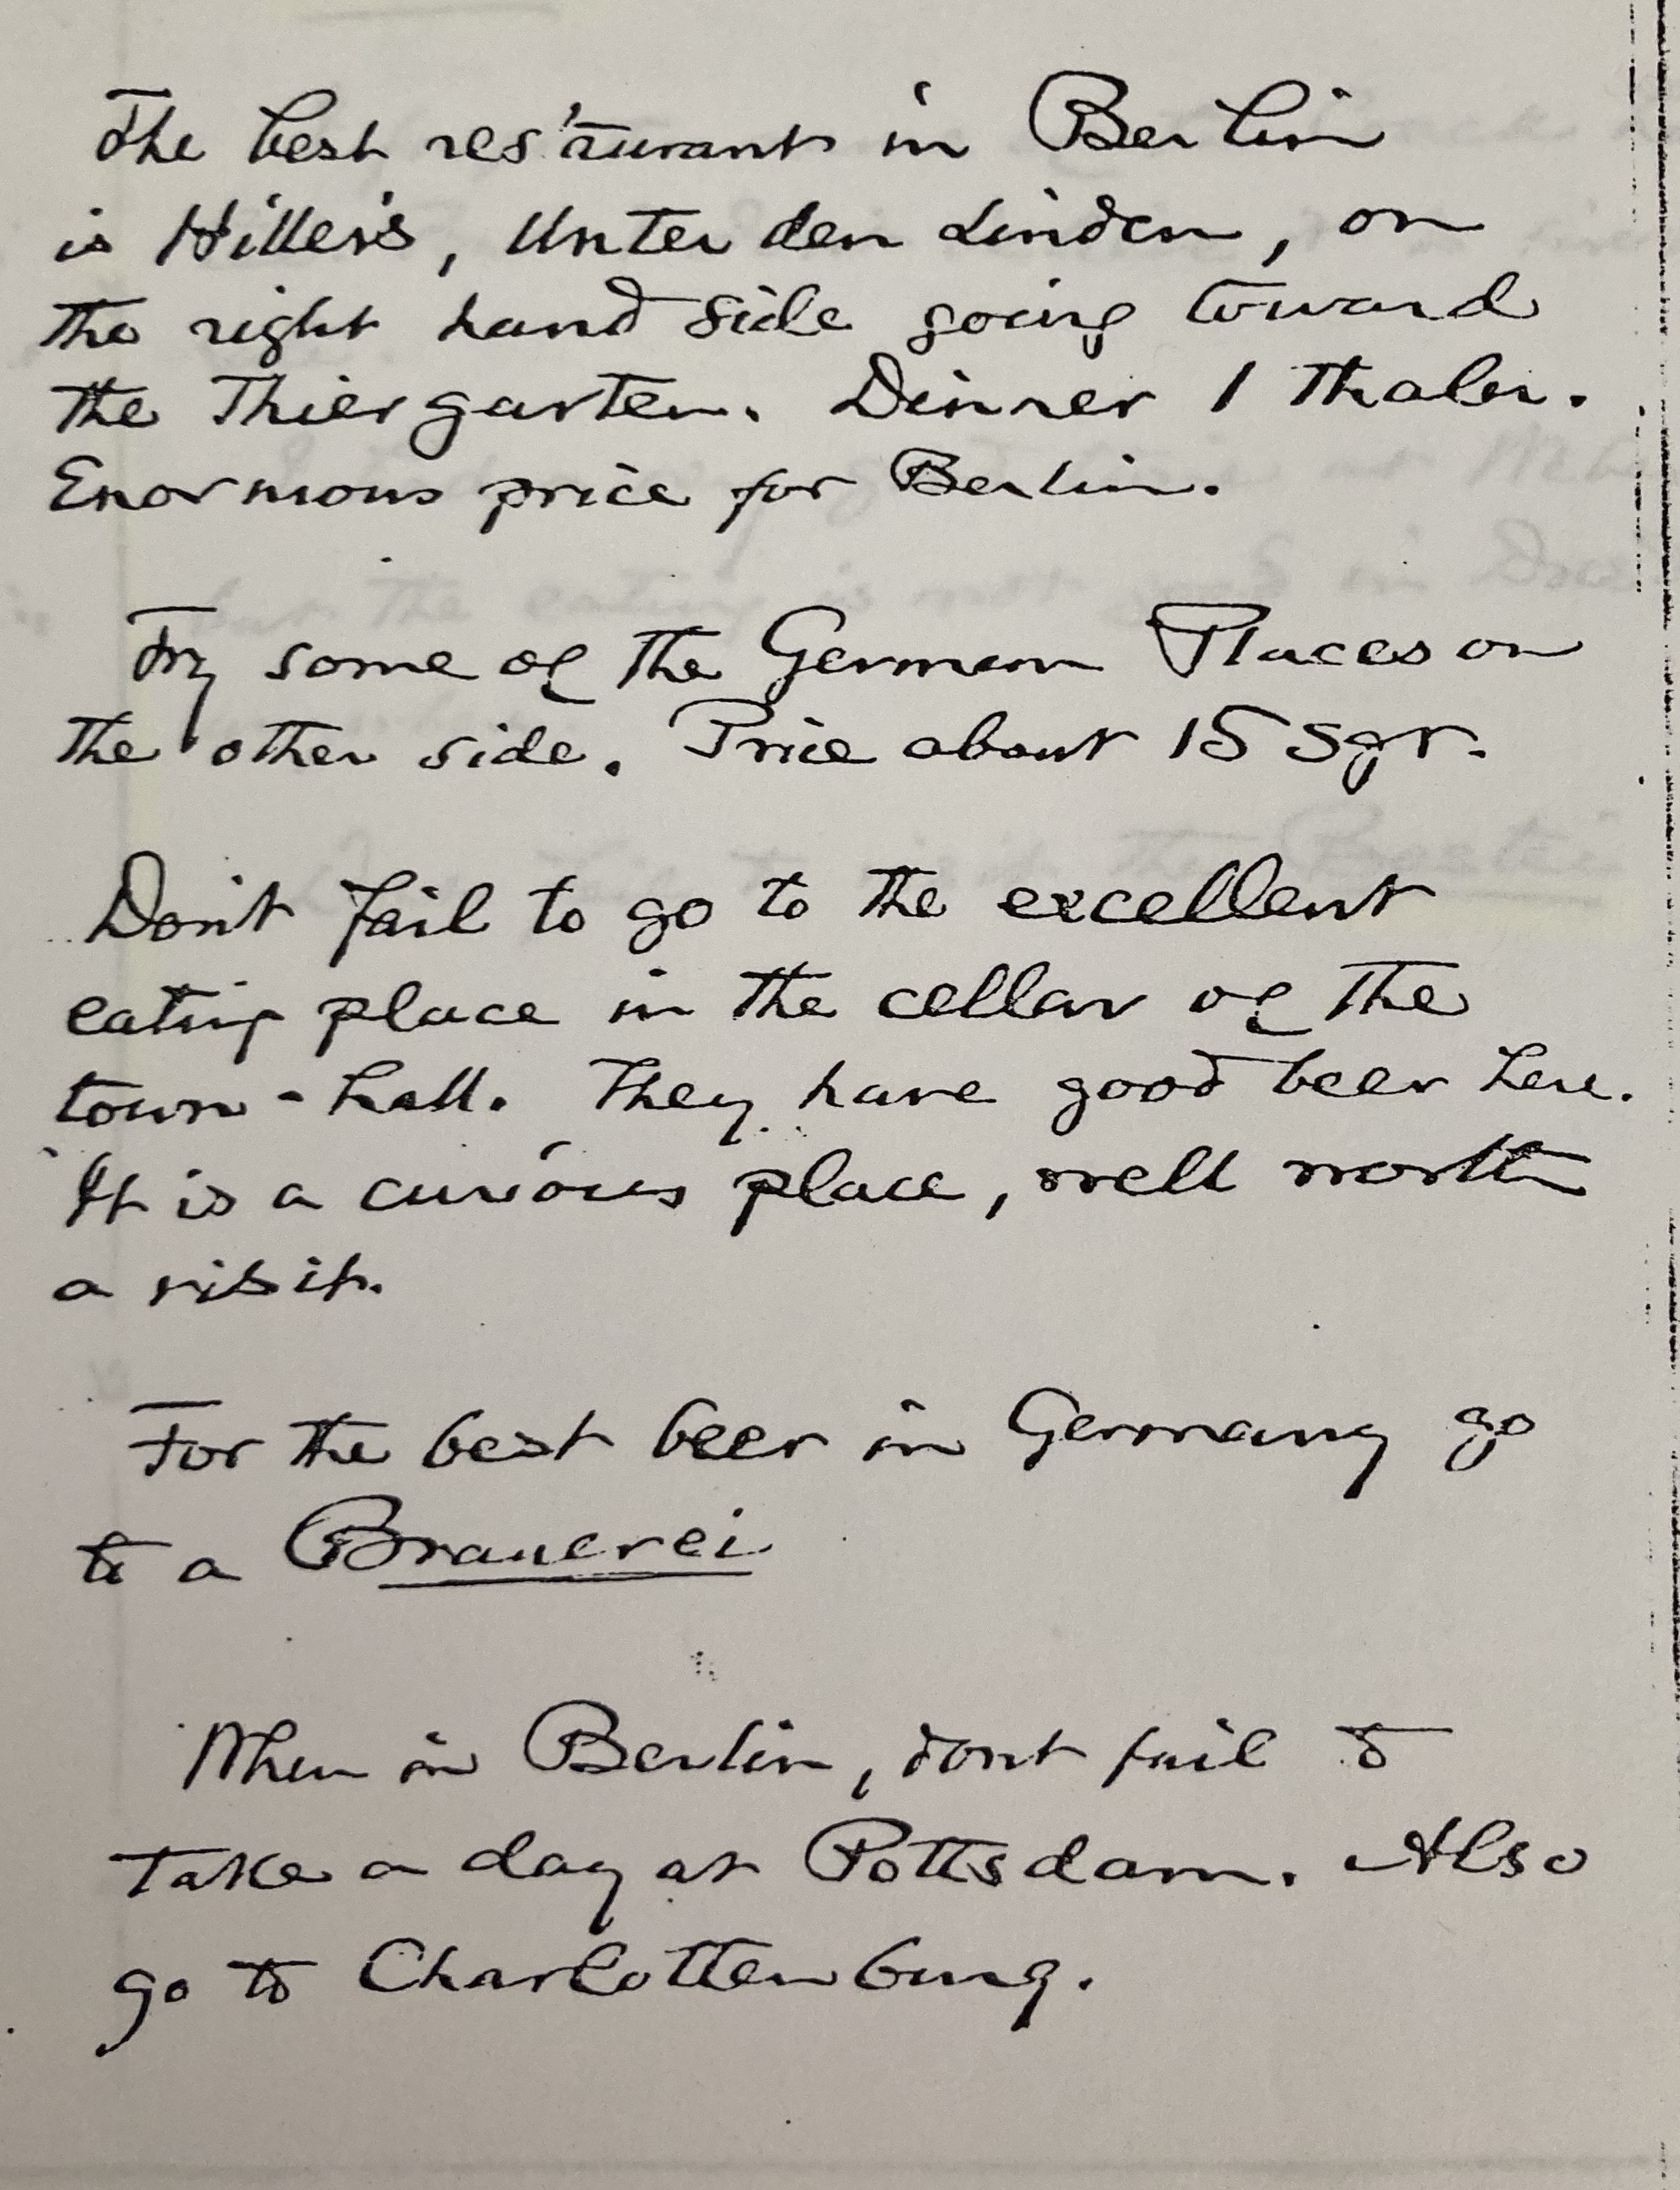 The best res'taurant in Berlin
is Hiller's, Unter den Linden, on
the right hand side going toward
the Thiergarten. Dinner 1 Thaler.
Enormous price for Berlin.
Try some of the German Places on
the other side. Price about 15 Sgr.
Don't fail to go to the excellent
eating place in the cellar of the
town-hall. They have good beer here.
It is a curious place, well worth
a visit.
For the best beer in Germany go
to a Brauerei
When in Berlin, dont fail to
take a day at Pottsdam. Also
go to Charlottenburg.